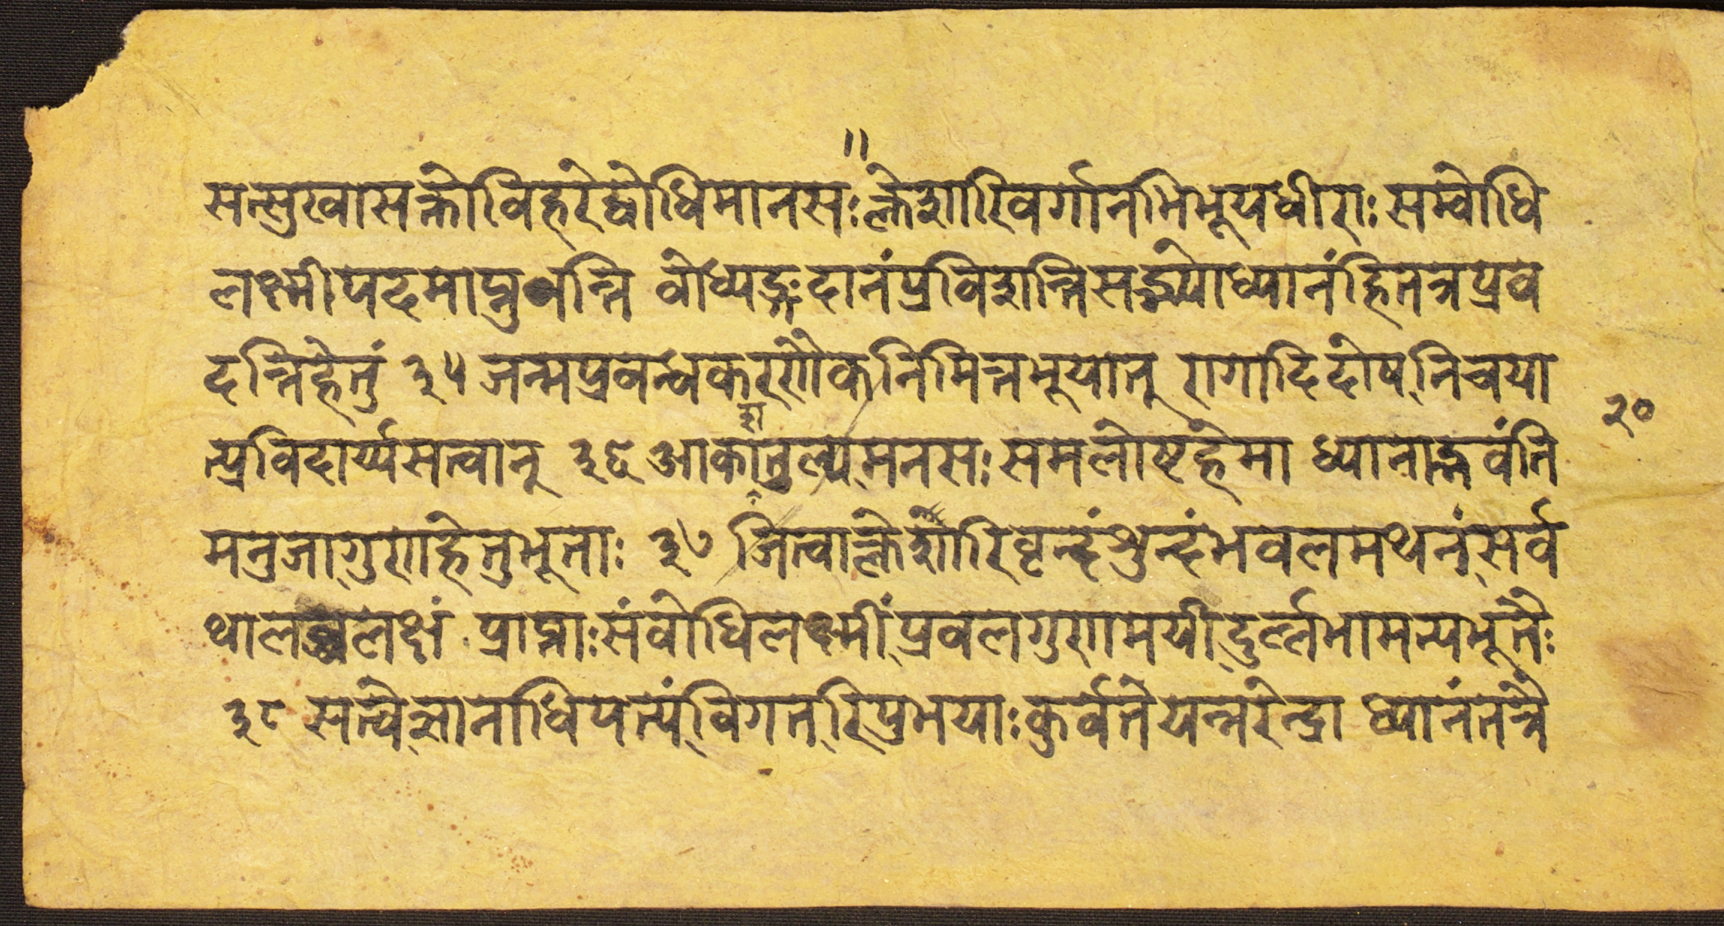 ॥
सत्सुखासक्तोविहरेद्वोधिमानसः क्लेशारिवर्गानभिभूयधीराः सम्वोधि
लक्ष्मीपदमाप्नुवन्ति वोध्यङ्गदानंप्रविशन्तिसद्भ्योध्यानंहितत्रप्रव
दन्तिहेतुं ३५ जन्मप्रवन्धकरणैकनिमित्तभूयानु रागादिदोषनिचया
२०
न्प्रविदार्य्यसत्वानु ३६ आकाशतुल्यमनसः समलोष्टहेमा ध्यानाद्भवंति
मनुजागुणहेतुभूताः ३७ जित्वाक्लेशारिवृन्दंशुन्दंभवलमथनंसर्व
थालव्धलक्षं प्राप्ताःसंवोधिलक्ष्मींप्रवलगुणमयीदुर्ल्लभामन्यभूतैः
३८ सत्वेज्ञानाधिपत्यंविगतरिपुभयाःकुर्वतेयन्नरेन्द्रा ध्यानंतत्रै